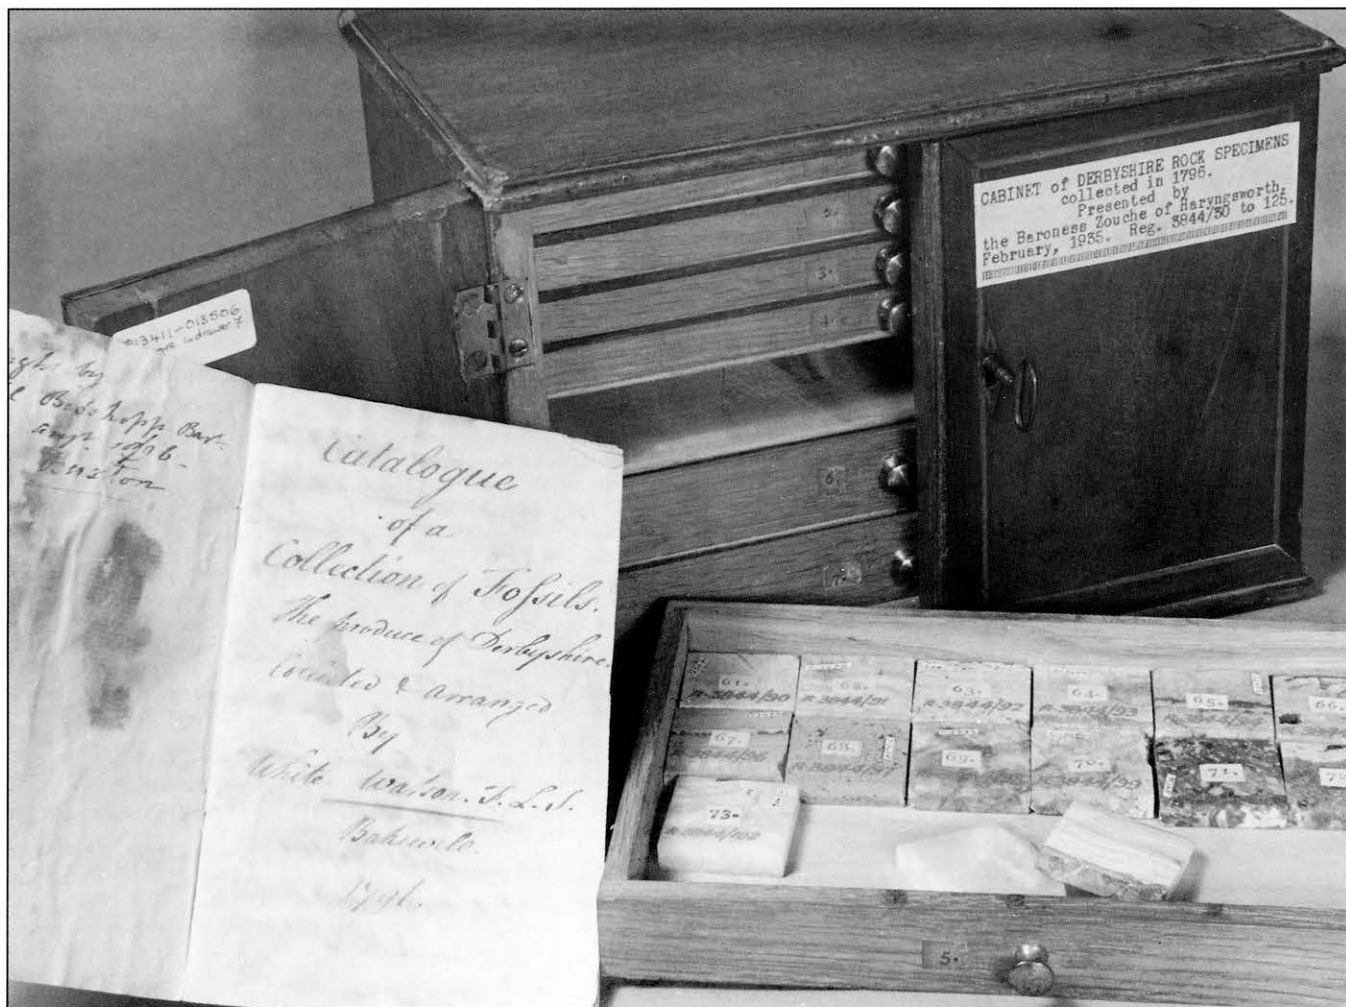 CABINET of DERBYSHIRE ROCK SPECIMENS
collected in 1796.
Presented by
the Baroness Zouche of Haryngsworth,
February, 1935. Reg. 3844/30 to 125.
013411-013506
are in drawer 7
by
Bart.
Catalogue
of a
Collection of Foſsils.
The produce of Derbyshire.
Collected & Arranged
By
White Watson. F. L. S.
Bakewell.
3.
4.
6.
7.
61.
R-3844/90
62.
R-3844/91
63.
R-3844/92
64.
R-3844/93
65.
66.
67.
3844/96
68.
R-3844/97
69.
70.
R-3844/99
71.
72
73.
R-3844/102
5.